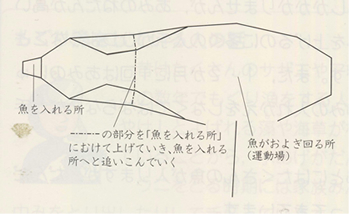 魚を入れる所
-·-·-·-の部分を「魚を入れる所」
にむけて上げていき、魚を入れる
所へと追いこんでいく
魚がおよぎ回る所
(運動場)